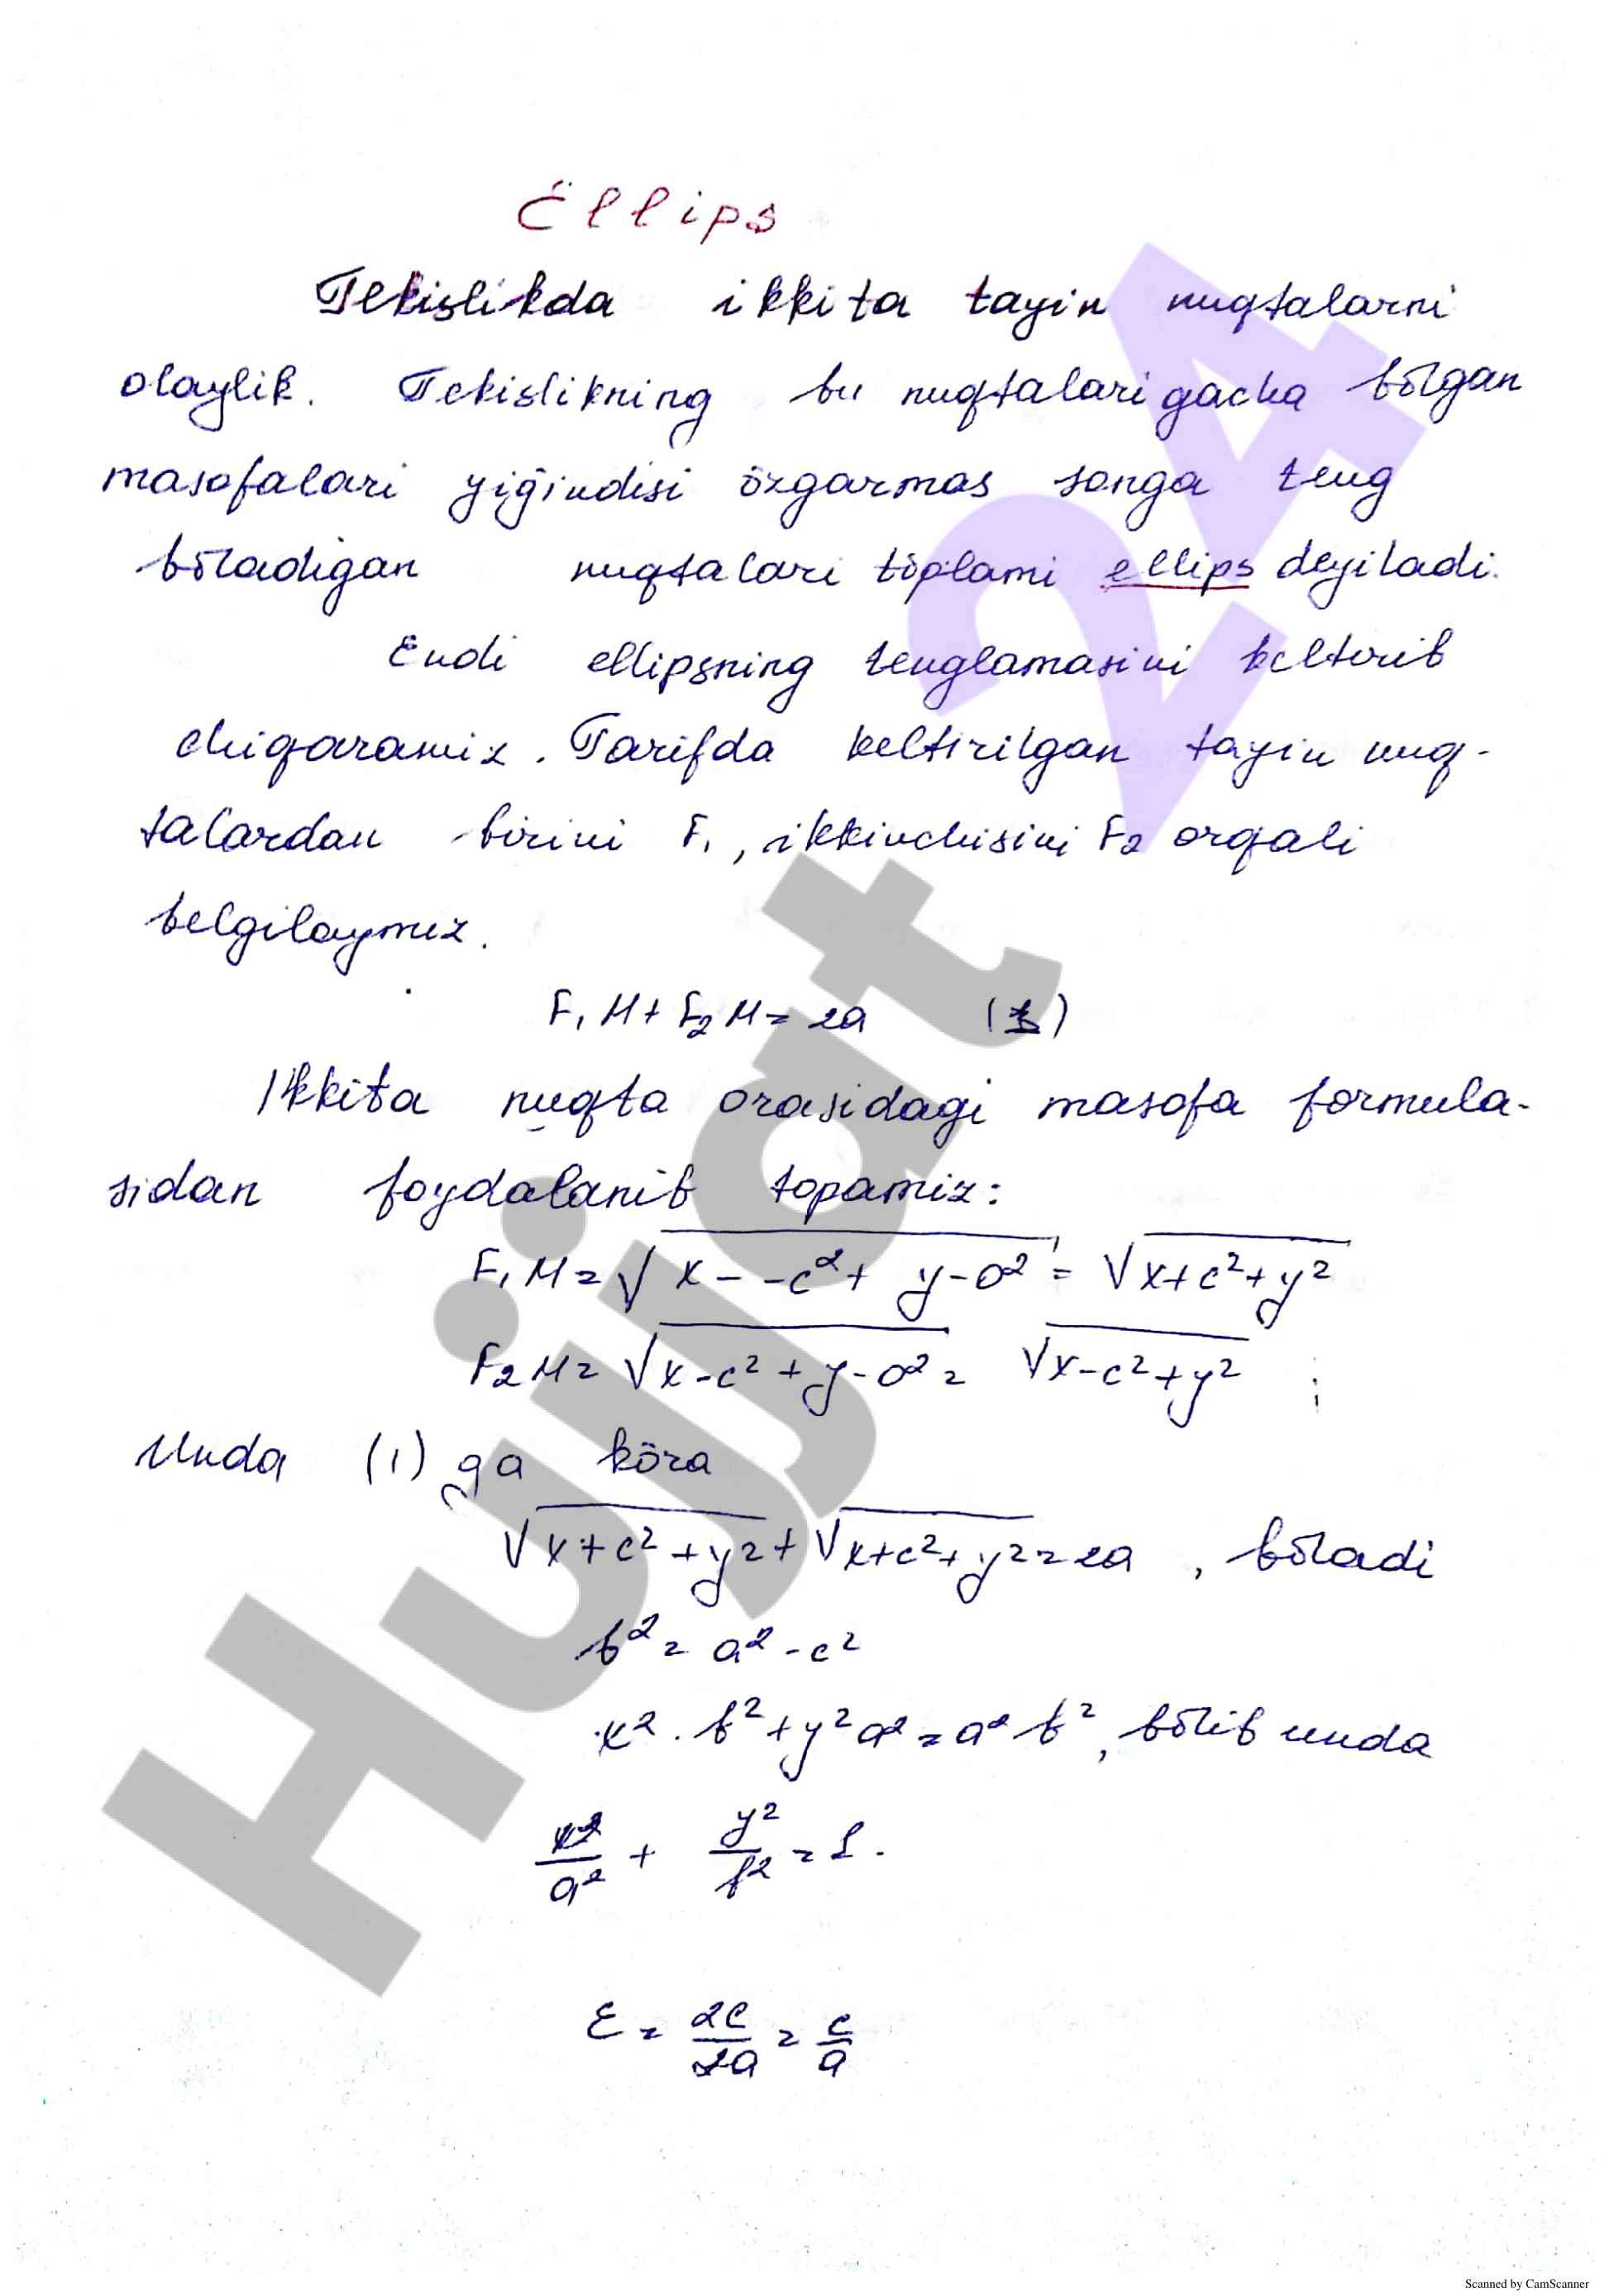 Ellips
Tekislikda ikkita tayin nuqtalarni
olaylik. Tekislikning bu nuqtalarigacha bõlgan
masofalari yiğindisi özgarmas songa teng
bõladigan nuqtalari töplami ellips deyiladi.
Endi ellipsning tenglamasini keltirib
chiqaramiz. Tarifda keltirilgan tayin nuq-
talardan birini F₁, ikkinchisini F₂ orqali
belgilaymiz.
F₁M + F₂M = 2a (1)
Ikkita nuqta orasidagi masofa formula-
sidan foydalanib topamiz:
F₁M = √x - -c² + y-0² = √x+c²+y²
F₂M = √x-c² + y-0² = √x-c²+y² ;
Unda (1) ga köra
√x+c²+y² + √x+c²+y² = 2a, bõladi
b² = a² - c²
x² · b² + y²a² = a²b², bõlib unda
x²/a² + y²/b² = 1.
ε = 2c/2a = c/a
Hujjat 24
Scanned by CamScanner